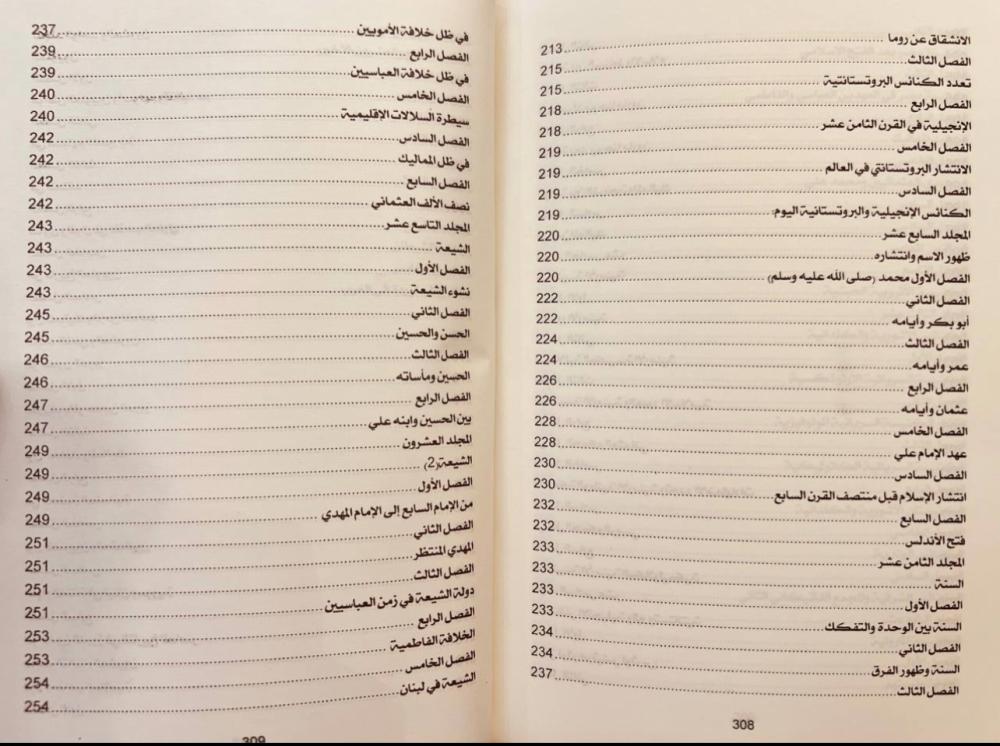 الانشقاق عن روما 213
الفصل الثالث 215
تعدد الكنائس البروتستانتية 215
الفصل الرابع 218
الإنجيلية في القرن الثامن عشر 218
الفصل الخامس 219
الانتشار البروتستانتي في العالم 219
الفصل السادس 219
الكنائس الإنجيلية والبروتستانية اليوم: 219
المجلد السابع عشر 220
ظهور الاسم وانتشاره 220
الفصل الأول محمد (صلى الله عليه وسلم) 220
الفصل الثاني 222
أبو بكر وأيامه 222
الفصل الثالث 224
عمر وأيامه 224
الفصل الرابع 226
عثمان وأيامه 226
الفصل الخامس 228
عهد الإمام علي 228
الفصل السادس 230
انتشار الإسلام قبل منتصف القرن السابع 230
الفصل السابع 232
فتح الأندلس 232
المجلد الثامن عشر 233
السنة 233
الفصل الأول 233
السنة بين الوحدة والتفكك 233
الفصل الثاني 234
السنة وظهور الفرق 234
الفصل الثالث 237
308
في ظل خلافة الأمويين 237
الفصل الرابع 239
في ظل خلافة العباسيين 239
الفصل الخامس 240
سيطرة السلالات الإقليمية 240
الفصل السادس 242
في ظل المماليك 242
الفصل السابع 242
نصف الألف العثماني 242
المجلد التاسع عشر 243
الشيعة 243
الفصل الأول 243
نشوء الشيعة 243
الفصل الثاني 245
الحسن والحسين 245
الفصل الثالث 246
الحسين ومأساته 246
الفصل الرابع 247
بين الحسين وابنه علي 247
المجلد العشرون 249
الشيعة (2) 249
الفصل الأول 249
من الإمام السابع إلى الإمام المهدي 249
الفصل الثاني 251
المهدي المنتظر 251
الفصل الثالث 251
دولة الشيعة في زمن العباسيين 251
الفصل الرابع 253
الخلافة الفاطمية 253
الفصل الخامس 254
الشيعة في لبنان 254
309